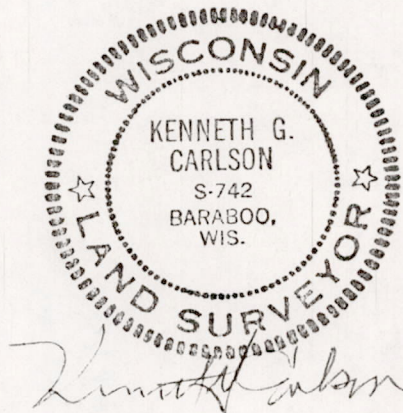 WISCONSIN
KENNETH G.
CARLSON
S-742
BARABOO,
WIS.
LAND SURVEYOR
Kenneth Carlson